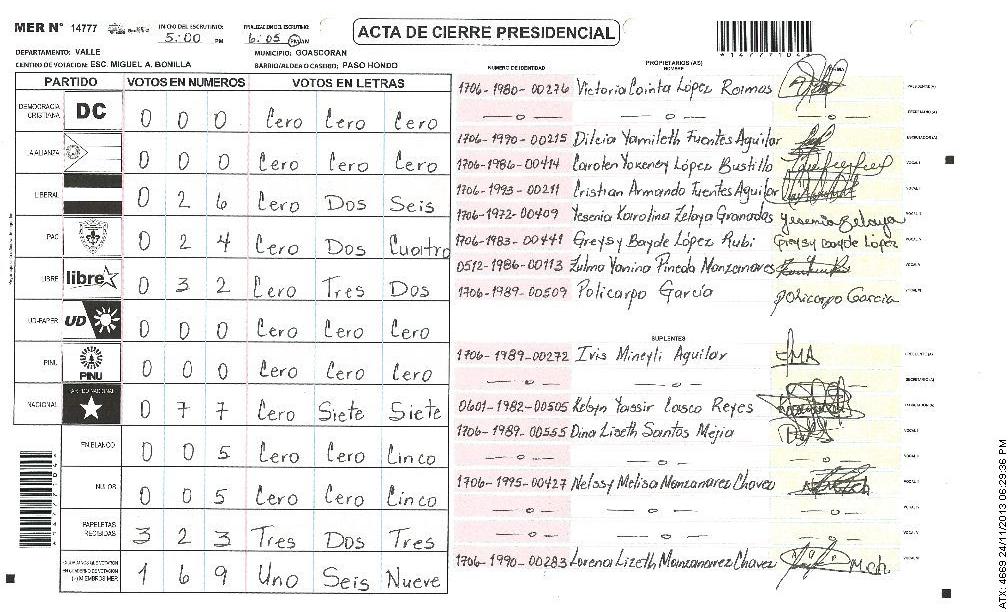 MER Nº 14777
INICIO DEL ESCRUTINIO: 5:00 PM
FINALIZACION DEL ESCRUTINIO: 6:05 PM AM
ACTA DE CIERRE PRESIDENCIAL
*14777104*
DEPARTAMENTO: VALLE
MUNICIPIO: GOASCORAN
CENTRO DE VOTACION: ESC. MIGUEL A. BONILLA
BARRIO/ALDEA O CASERIO: PASO HONDO
PARTIDO VOTOS EN NUMEROS VOTOS EN LETRAS
DEMOCRACIA CRISTIANA DC 0 0 0 Cero Cero Cero
LA ALIANZA 0 0 0 Cero Cero Cero
LIBERAL 0 2 6 Cero Dos Seis
PAC 0 2 4 Cero Dos Cuatro
LIBRE libre 0 3 2 Cero Tres Dos
UD-FAPER UD 0 0 0 Cero Cero Cero
PINU PINU 0 0 0 Cero Cero Cero
NACIONAL PARTIDO NACIONAL 0 7 7 Cero Siete Siete
EN BLANCO 0 0 5 Cero Cero Cinco
NULOS 0 0 5 Cero Cero Cinco
PAPELETAS RECIBIDAS 3 2 3 Tres Dos Tres
CIUDADANOS QUE VOTARON EN CUADERNO DE VOTACION (+) MIEMBROS MER 1 6 9 Uno Seis Nueve
NUMERO DE IDENTIDAD PROPIETARIOS (AS) NOMBRE FIRMA
1706-1980-00276 Victoria Cointa López Romas PRESIDENTE (A)
— o — — o — — o — SECRETARIO (A)
1706-1990-00215 Dilcia Yamileth Fuentes Aguilar ESCRUTADOR (A)
1706-1986-00414 Carolen Yoxeney López Bustillo VOCAL I
1706-1993-00211 Cristian Armando Fuentes Aguilar
1706-1972-00409 Yesenia Karolina Zelaya Granados Yesenia Zelaya
1706-1983-00441 Greysy Bayde López Rubi Greysy Bayde López
0512-1986-00113 Zulma Yanina Pineda Manzanares
1706-1989-00509 Policarpo García policarpo Garcia
SUPLENTES
1706-1989-00272 Iris Mineyli Aguilar PRESIDENTE (A)
— o — — o — — o — SECRETARIO (A)
0601-1982-00505 Kelsyn Yassir Lasco Reyes
1706-1989-00555 Dina Lizeth Santos Mejia
— o — — o — — o —
1706-1995-00427 Nelssy Melisa Manzanarez Chavez
— o — — o — — o —
— o — — o — — o —
1706-1990-00283 Lorena Lizeth Manzanarez Chavez M.ch
*14777104*
ATX: 4669 24/11/2013 06:29:36 PM